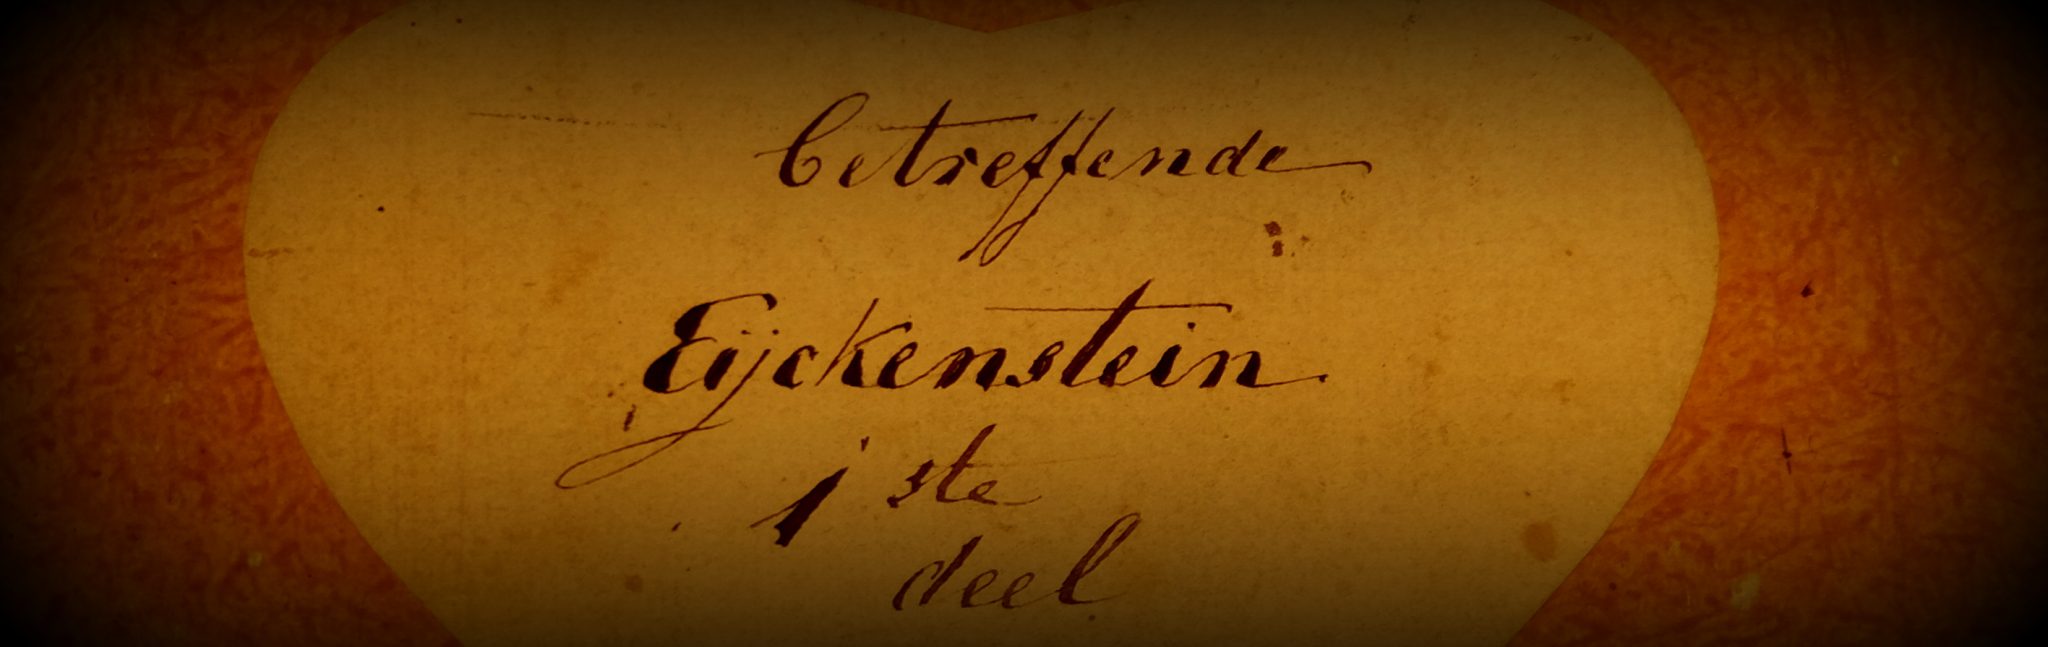 betreffende
Eijckenstein
1 ste
deel